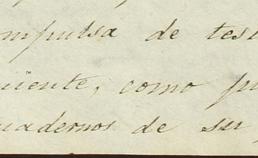 mpulsa de tes
üente, como pu
uadernos de su